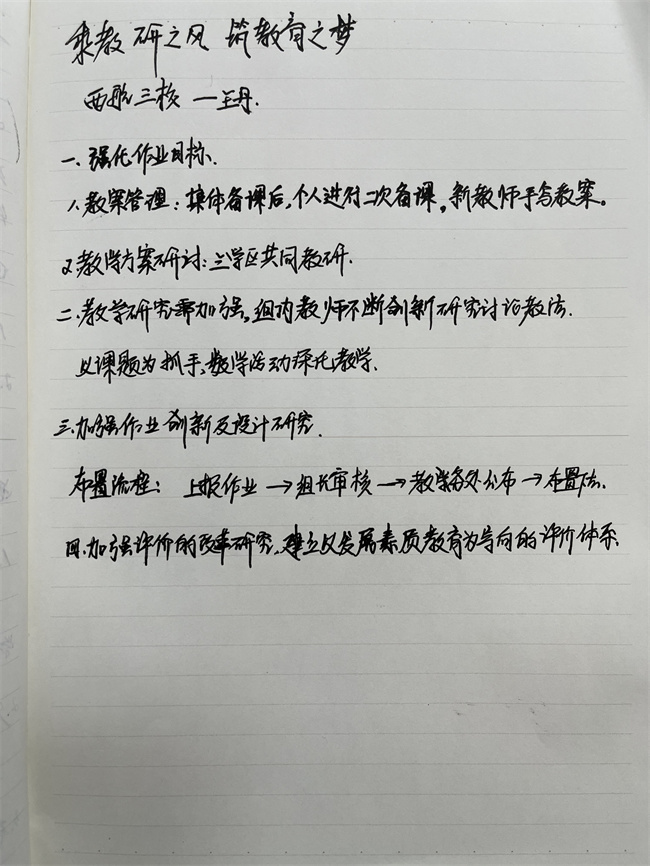 乘教研之风 筑教育之梦
西航三校 — 王丹.
一. 强化作业目标.
1. 教案管理:集体备课后,个人进行二次备课,新教师手写教案。
2 教学方案研讨:兰学区共同教研.
二. 教学研究需加强,组内教师不断创新研究讨论教法.
以课题为抓手,数学活动深化教学.
三.加强作业创新及设计研究.
布置流程: 上报作业 → 组长审核 → 教学处公布 → 布置
四.加强评价的改革研究,建立以发展素质教育为导向的评价体系.